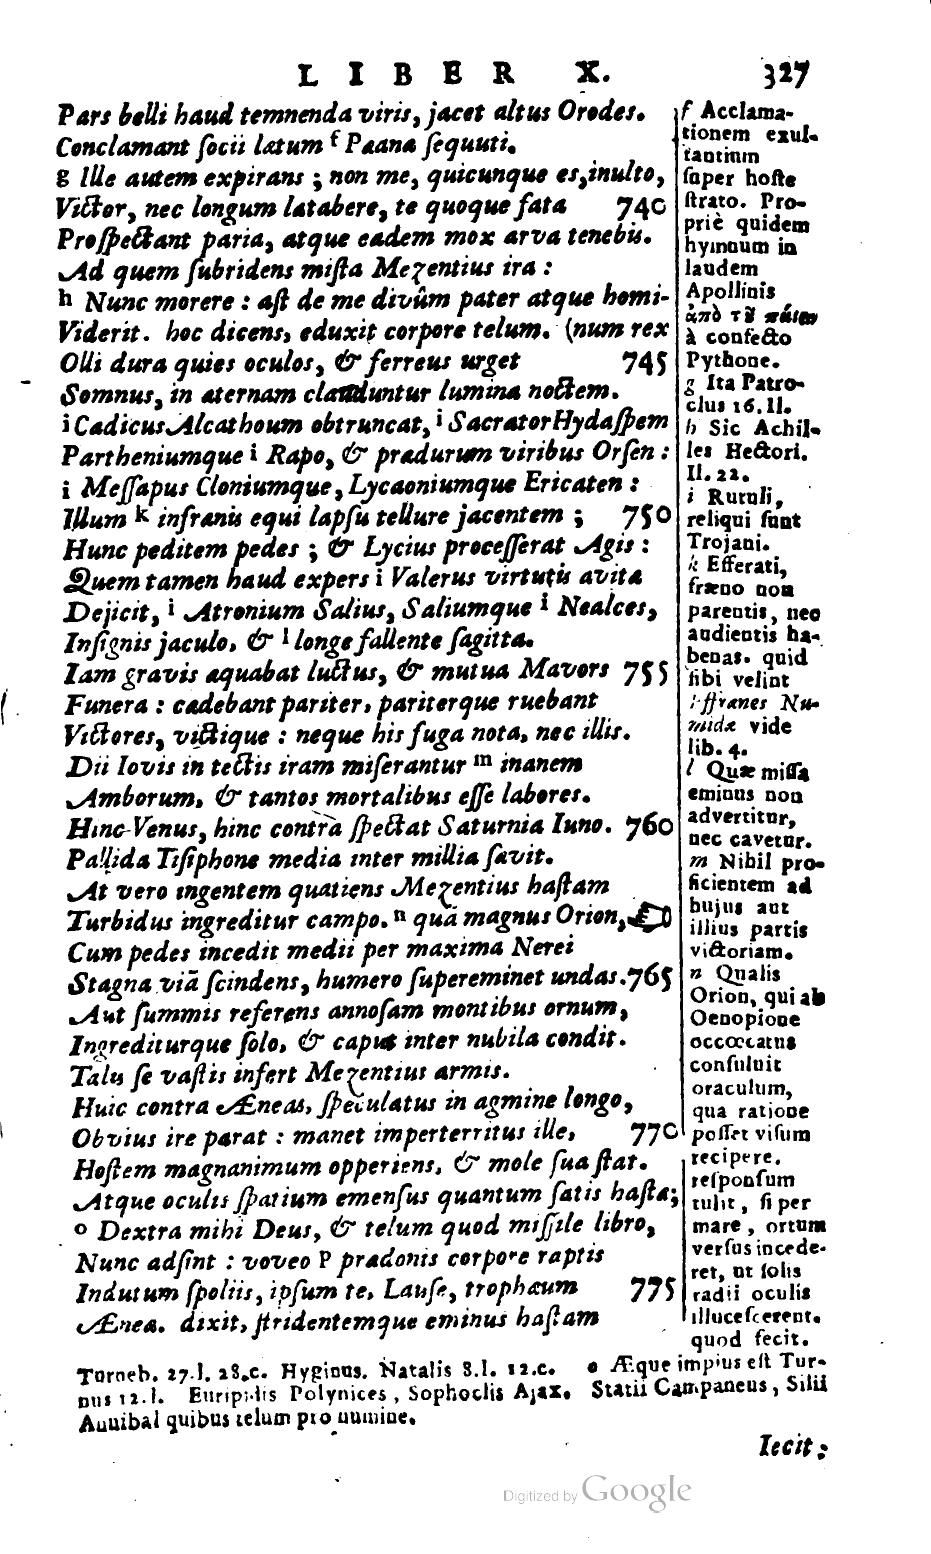 LIBER X. 327
Pars belli haud temnenda viris, jacet altus Orodes.
Conclamant ſocii lætum f Pæana ſequuti.
g Ille autem expirans ; non me, quicunque es, inulto,
Victor, nec longum lætabere, te quoque fata 740
Proſpectant paria, atque eadem mox arva tenebis.
Ad quem ſubridens miſta Mezentius ira :
h Nunc morere : aſt de me divûm pater atque homi-
Viderit. hoc dicens, eduxit corpore telum. (num rex
Olli dura quies oculos, & ferreus urget 745
Somnus, in æternam clauduntur lumina noctem.
i Cædicus Alcathoum obtruncat, i Sacrator Hydaſpem
Partheniumque i Rapo, & prædurum viribus Orſen :
i Meſſapus Cloniumque, Lycaoniumque Ericaten :
Illum k infrænis equi lapſu tellure jacentem ; 750
Hunc peditem pedes ; & Lycius proceſſerat Agis :
Quem tamen haud expers i Valerus virtutis avitæ
Dejicit, i Atronium Salius, Saliumque i Nealces,
Inſignis jaculo, & l longe fallente ſagitta.
Iam gravis æquabat luctus, & mutua Mavors 755
Funera : cædebant pariter, pariterque ruebant
Victores, victique : neque his fuga nota, nec illis.
Dii Iovis in tectis iram miſerantur m inanem
Amborum, & tantos mortalibus eſſe labores.
Hinc Venus, hinc contrà ſpectat Saturnia Iuno. 760
Pallida Tiſiphone media inter millia ſævit.
At vero ingentem quatiens Mezentius haſtam
Turbidus ingreditur campo. n quâ magnus Orion,
Cum pedes incedit medii per maxima Nerei
Stagna viã ſcindens, humero ſupereminet undas. 765
Aut ſummis referens annoſam montibus ornum,
Ingrediturque ſolo, & caput inter nubila condit.
Talis ſe vaſtis infert Mezentius armis.
Huic contra Æneas, ſpeculatus in agmine longo,
Obvius ire parat : manet imperterritus ille, 770
Hoſtem magnanimum opperiens, & mole ſua ſtat.
Atque oculis ſpatium emenſus quantum ſatis haſtæ;
o Dextra mihi Deus, & telum quod miſſile libro,
Nunc adſint : voveo p prædonis corpore raptis
Indutum ſpoliis, ipſum te, Lauſe, trophæum 775
Æneæ. dixit, ſtridentemque eminus haſtam
f Acclama-
tionem exul-
tantium
ſuper hoſte
ſtrato. Pro-
priè quidem
hymnum in
laudem
Apollinis
ἀπὸ τῦ παίειν
à confecto
Pythone.
g Ita Patro-
clus 16. Il.
h Sic Achil-
les Hectori.
Il. 22.
i Rutuli,
reliqui ſunt
Trojani.
k Efferati,
fræno non
parentis, nec
audientis ha-
benas. quid
ſibi velint
Effranes Nu-
midæ vide
lib. 4.
l Quæ miſſa
eminus non
advertitur,
nec cavetur.
m Nihil pro-
ficientem ad
hujus aut
illius partis
victoriam.
n Qualis
Orion, qui ab
Oenopione
occœcatus
conſuluit
oraculum,
qua ratione
poſſet viſum
recipere.
reſponſum
tulit, ſi per
mare, ortum
verſus incede-
ret, ut ſolis
radii oculis
illuceſcerent.
quod fecit.
Torneb. 27. l. 28. c. Hyginus. Natalis 8. l. 12. c. o Æque impius eſt Tur-
nus 12. l. Euripidis Polynices, Sophoclis Ajax. Statii Campaneus, Silii
Annibal quibus telum pro numine.
Iecit;
Digitized by Google